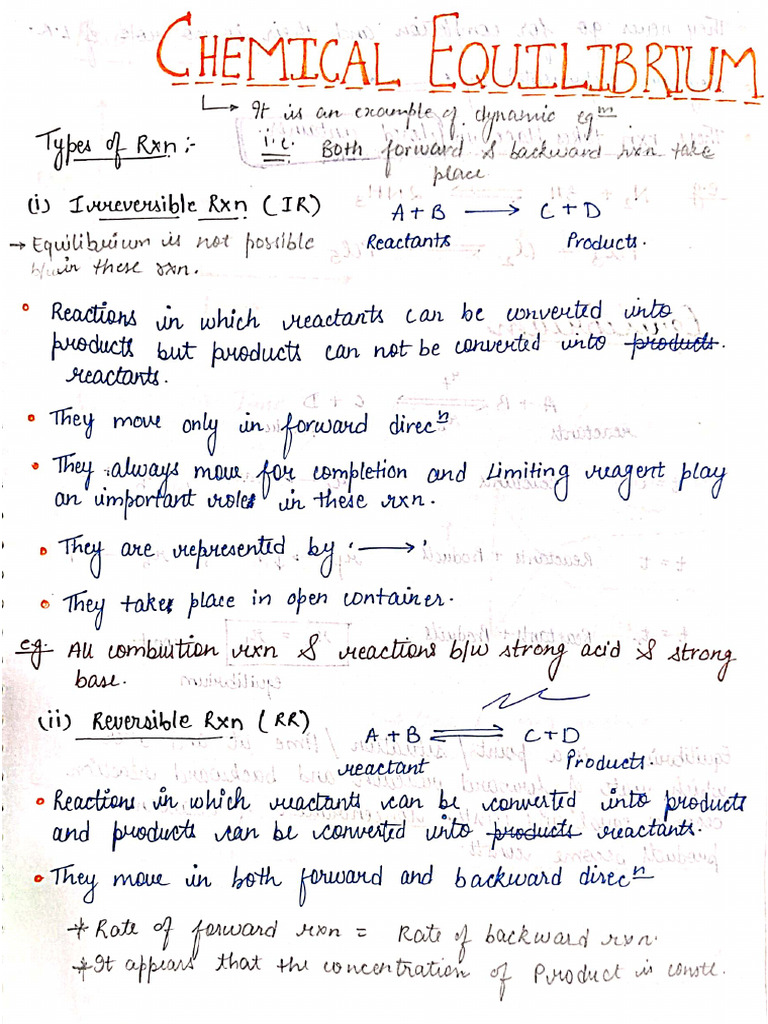 CHEMICAL EQUILIBRIUM
↳ It is an example of dynamic eqᵐ
Types of Rxn :- i.e. Both forward & backward rxn take
place
(i) Irreversible Rxn (IR) A + B ⟶ C + D
→ Equilibrium is not possible Reactants Products.
in these rxn.
• Reactions in which reactants can be converted into
products but products can not be converted into products.
reactants.
• They move only in forward direcⁿ
• They always move for completion and Limiting reagent play
an important roles in these rxn.
• They are represented by '⟶'
• They takes place in open container.
eg. All combustion rxn & reactions b/w strong acid & strong
base.
(ii) Reversible Rxn (RR) A + B ⇌ C + D
reactant Products.
• Reactions in which reactants can be converted into products
and products can be converted into products reactants.
• They move in both forward and backward direcⁿ
* Rate of forward rxn = Rate of backward rxn.
* It appears that the concentration of Product is constt.